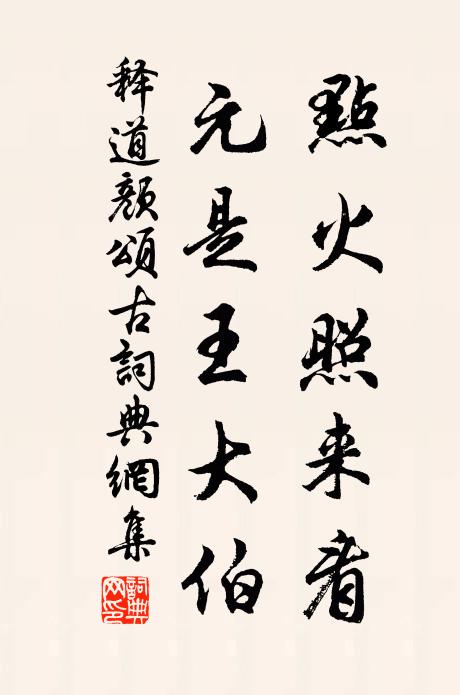 點火照来看
元是王大伯
释道顏頌古詞典網集
詞典网印